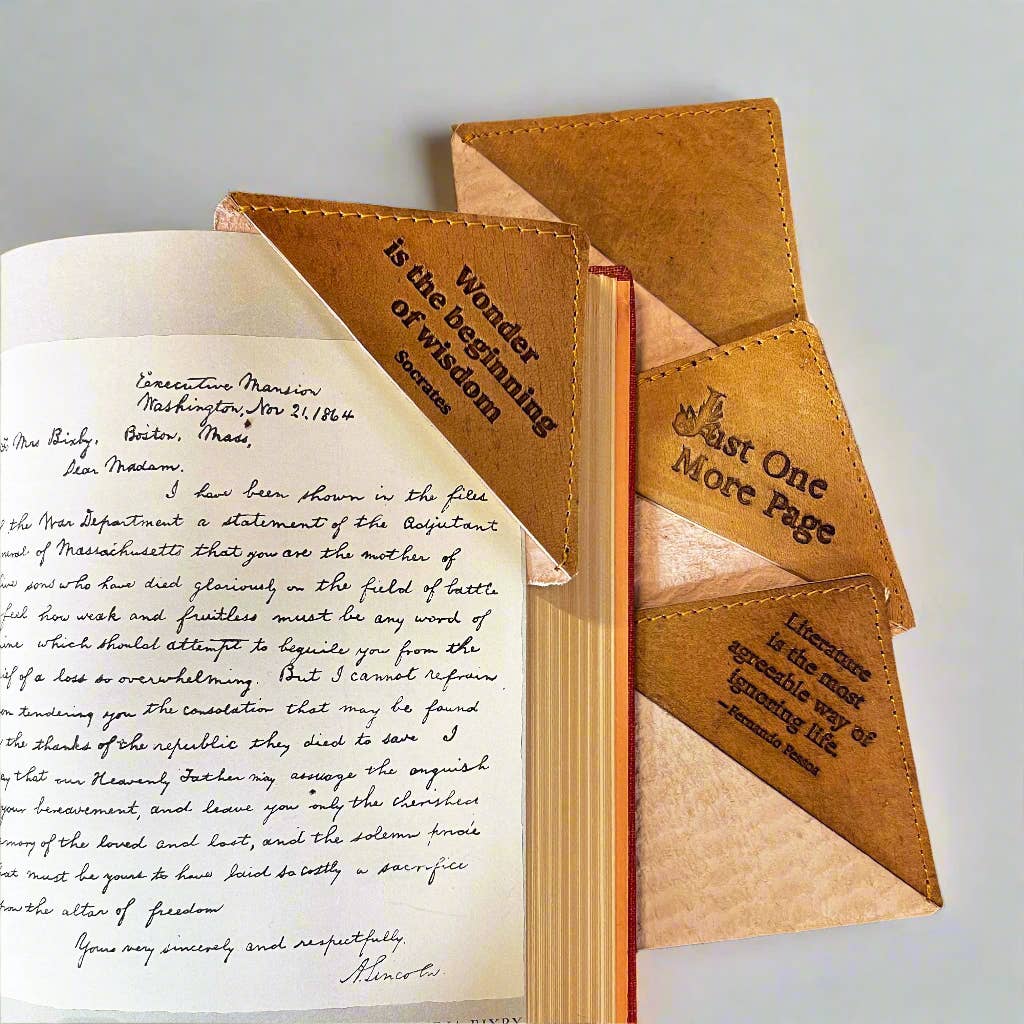 Executive Mansion
Washington, Nov 21, 1864
Mrs Bixby, Boston, Mass,
Dear Madam.
I have been shown in the files
the War Department a statement of the Adjutant
of Massachusetts that you are the mother of
sons who have died gloriously on the field of battle
feel how weak and fruitless must be any word of
which should attempt to beguile you from the
of a loss so overwhelming. But I cannot refrain
tendering you the consolation that may be found
the thanks of the republic they died to save I
that our Heavenly Father may assuage the anguish
your bereavement, and leave you only the cherished
of the loved and lost, and the solemn pride
must be yours to have laid so costly a sacrifice
the altar of freedom
Yours very sincerely and respectfully.
A. Lincoln.
Wonder
is the beginning
of wisdom
Socrates
Just One
More Page
Literature
is the most
agreeable way of
ignoring life.
—Fernando Pessoa